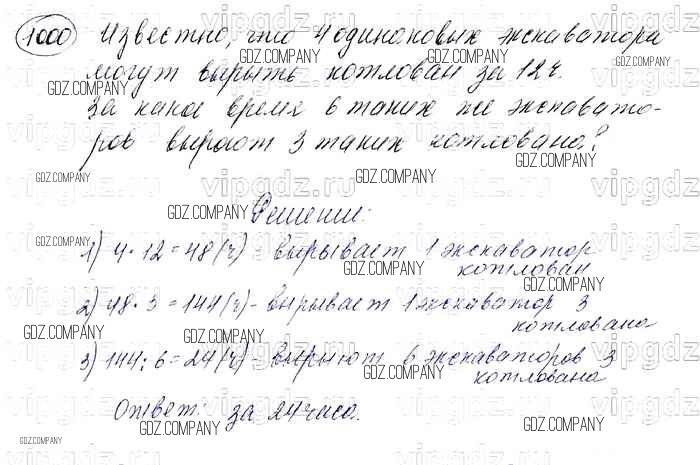 1000 Известно, что 4 одинаковых экскаватора
могут вырыть котлован за 12 ч.
За какое время 6 таких же экскавато-
ров выроют 3 таких котлована?
Решение:
1) 4 · 12 = 48 (ч) - вырывает 1 экскаватор
котлован
2) 48 · 3 = 144 (ч) - вырывает 1 экскаватор 3
котлована
3) 144 : 6 = 24 (ч) - вырыют 6 экскаваторов 3
котлована
Ответ: за 24 часа.
GDZ.COMPANY
vipgdz.ru